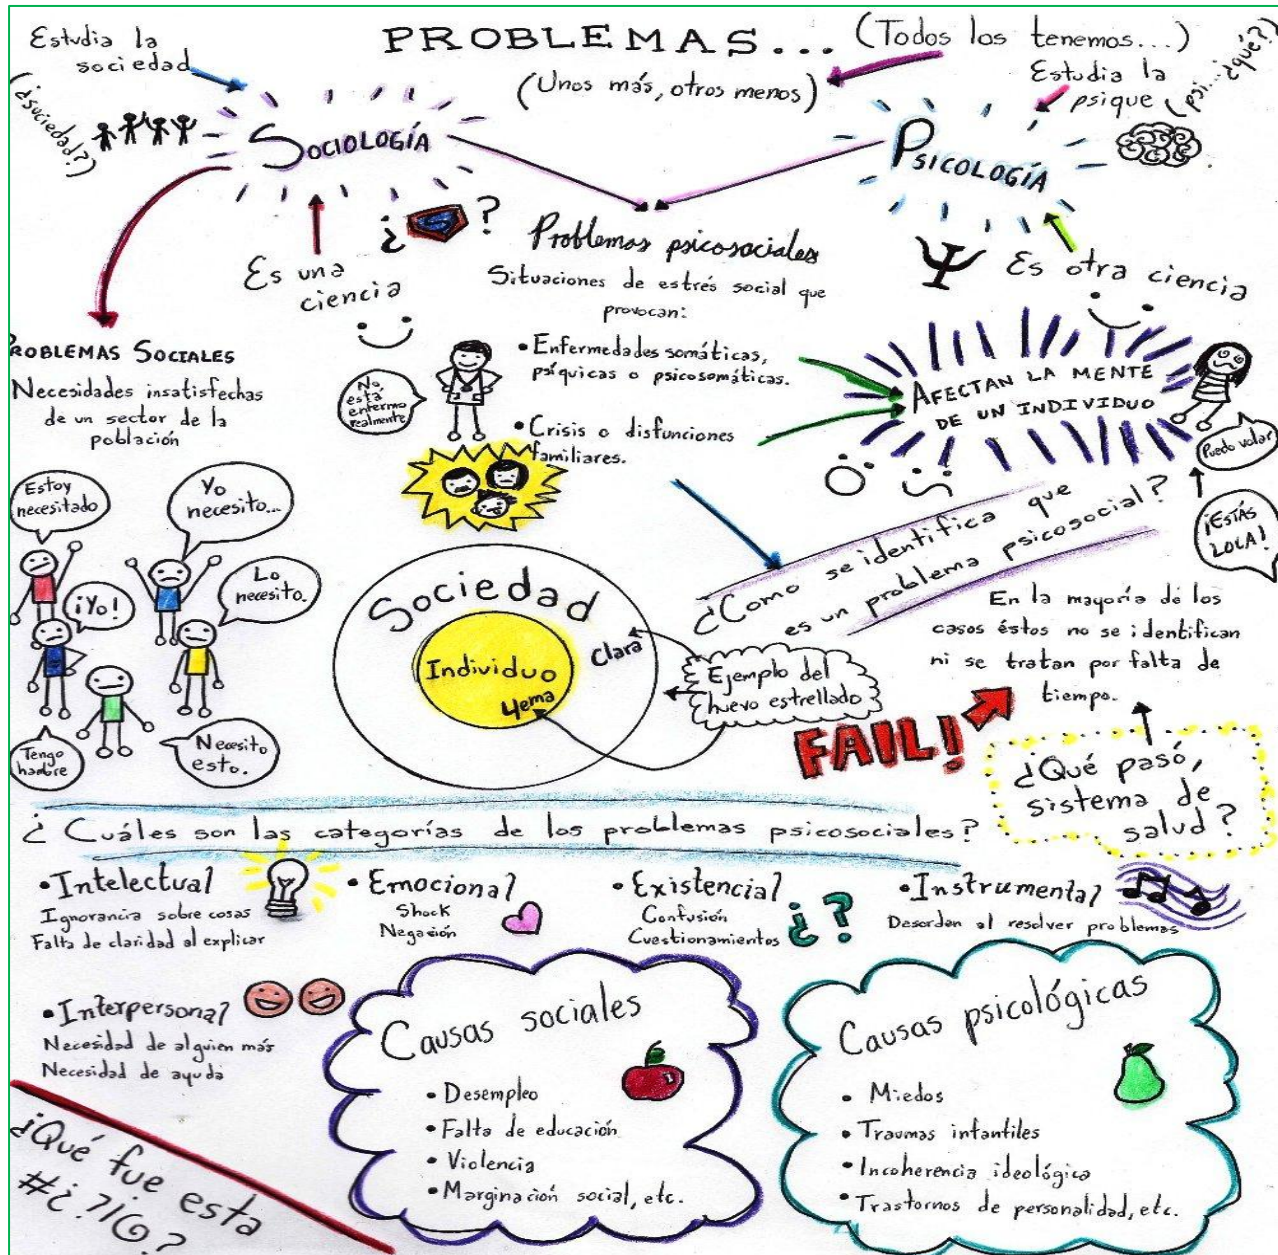 PROBLEMAS...
(Todos los tenemos...)
(Unos más, otros menos)
Estudia la
sociedad
(¿sociedad?)
SOCIOLOGÍA
Estudia la
psique
(psi...¿qué??)
PSICOLOGÍA
Es una
ciencia
¿S?
Es otra ciencia
Ψ
Problemas psicosociales
Situaciones de estrés social que
provocan:
• Enfermedades somáticas,
psíquicas o psicosomáticas.
• Crisis o disfunciones
familiares.
No,
está
enfermo
realmente
AFECTAN LA MENTE
DE UN INDIVIDUO
Puedo volar
¡ESTÁS
LOCA!
PROBLEMAS SOCIALES
Necesidades insatisfechas
de un sector de la
población
Estoy
necesitado
Yo
necesito...
¡Yo!
Lo
necesito.
Tengo
hambre
Necesito
esto.
Sociedad
Individuo
Clara
Yema
Ejemplo del
huevo estrellado
¿Como se identifica que
es un problema psicosocial?
En la mayoría de los
casos éstos no se identifican
ni se tratan por falta de
tiempo.
FAIL!
¿Qué pasó,
sistema de
salud?
¿Cuáles son las categorías de los problemas psicosociales?
• Intelectual
Ignorancia sobre cosas
Falta de claridad al explicar
• Emocional
Shock
Negación
• Existencial
Confusión
Cuestionamientos
¿?
• Instrumental
Desorden al resolver problemas
• Interpersonal
Necesidad de alguien más
Necesidad de ayuda
Causas sociales
• Desempleo
• Falta de educación
• Violencia
• Marginación social, etc.
Causas psicológicas
• Miedos
• Traumas infantiles
• Incoherencia ideológica
• Trastornos de personalidad, etc.
¿Qué fue esta